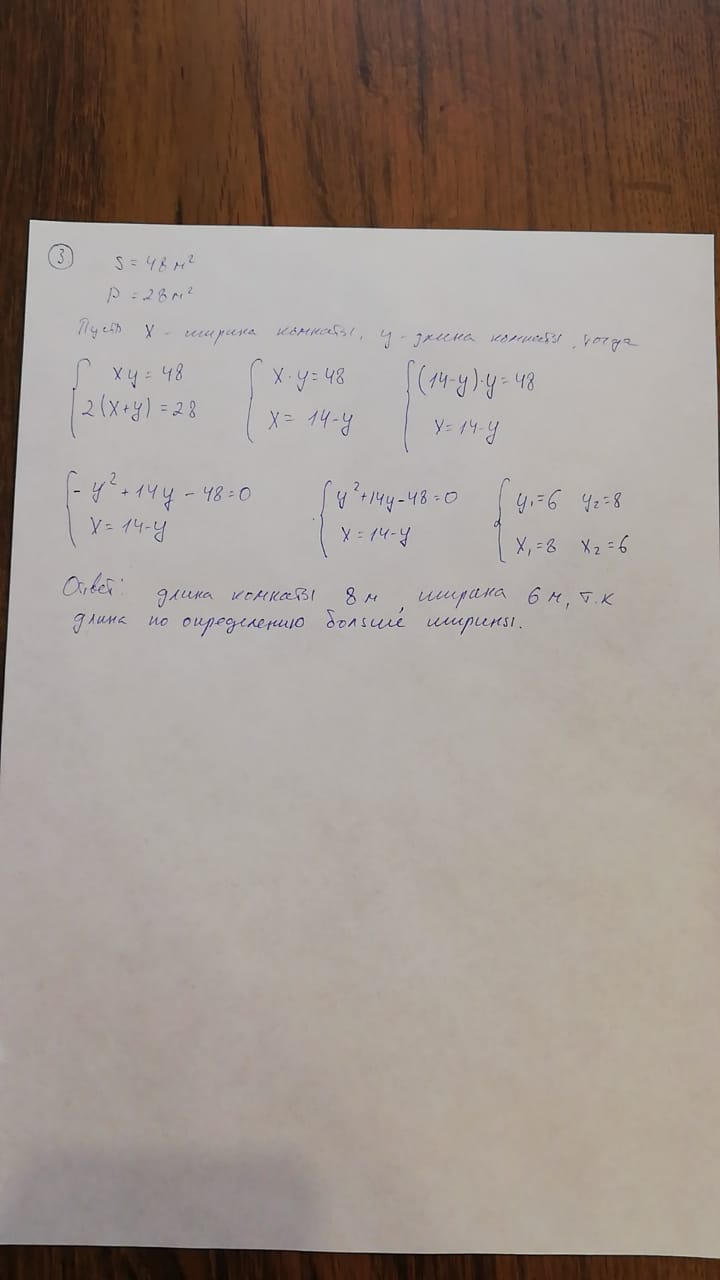 3
S = 48 м²
P = 28 м²
Пусть x - ширина комнаты, y - длина комнаты, тогда
{ xy = 48 { x·y = 48 { (14-y)·y = 48
2(x+y) = 28 x = 14-y x = 14-y
{ -y²+14y-48=0 { y²+14y-48=0 { y₁=6 y₂=8
x = 14-y x = 14-y x₁=8 x₂=6
Ответ: длина комнаты 8 м, ширина 6 м, т.к
длина по определению больше ширины.